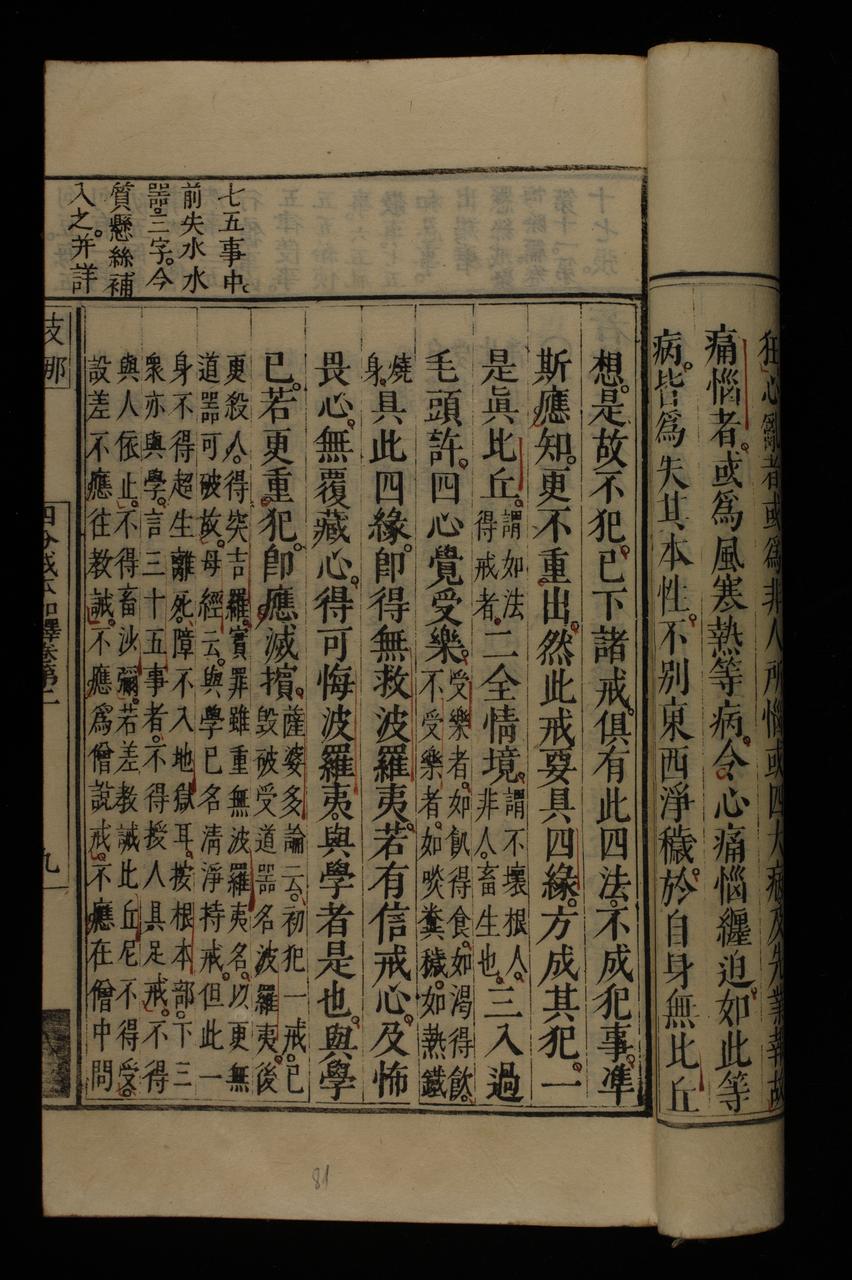 狂心亂者或爲非人所惱或四大病及先業報故
痛惱者或爲風寒熱等病令心痛惱纏迫如此等
病皆爲失其本性不別東西淨穢於自身無比丘
七五事中
前失水水
器三字今
質懸絲補
入之并詳
想是故不犯已下諸戒俱有此四法不成犯事準
斯應知更不重出然此戒要具四緣方成其犯一
是眞比丘謂如法得戒者二全情境謂不壞根人非人畜生也三入過
毛頭許四心覺受樂受樂者如飢得食如渴得飲不受樂者如啖糞穢如熱鐵
燒身具此四緣卽得無救波羅夷若有信戒心及怖
畏心無覆藏心得可悔波羅夷與學者是也與學
已若更重犯卽應滅擯薩婆多論云初犯一戒已毀破受道器名波羅夷後
更殺人得突吉羅實罪雖重無波羅夷名以更無
道器可破故母經云與學已名清淨持戒但此一
身不得超生離死障不入地獄耳按根本部下三
衆亦與學言三十五事者不得授人具足戒不得
與人依止不得畜沙彌若差教誡比丘尼不得受
設差不應往教誡不應爲僧說戒不應在僧中問
支那
四分戒本如釋卷第二
九
81